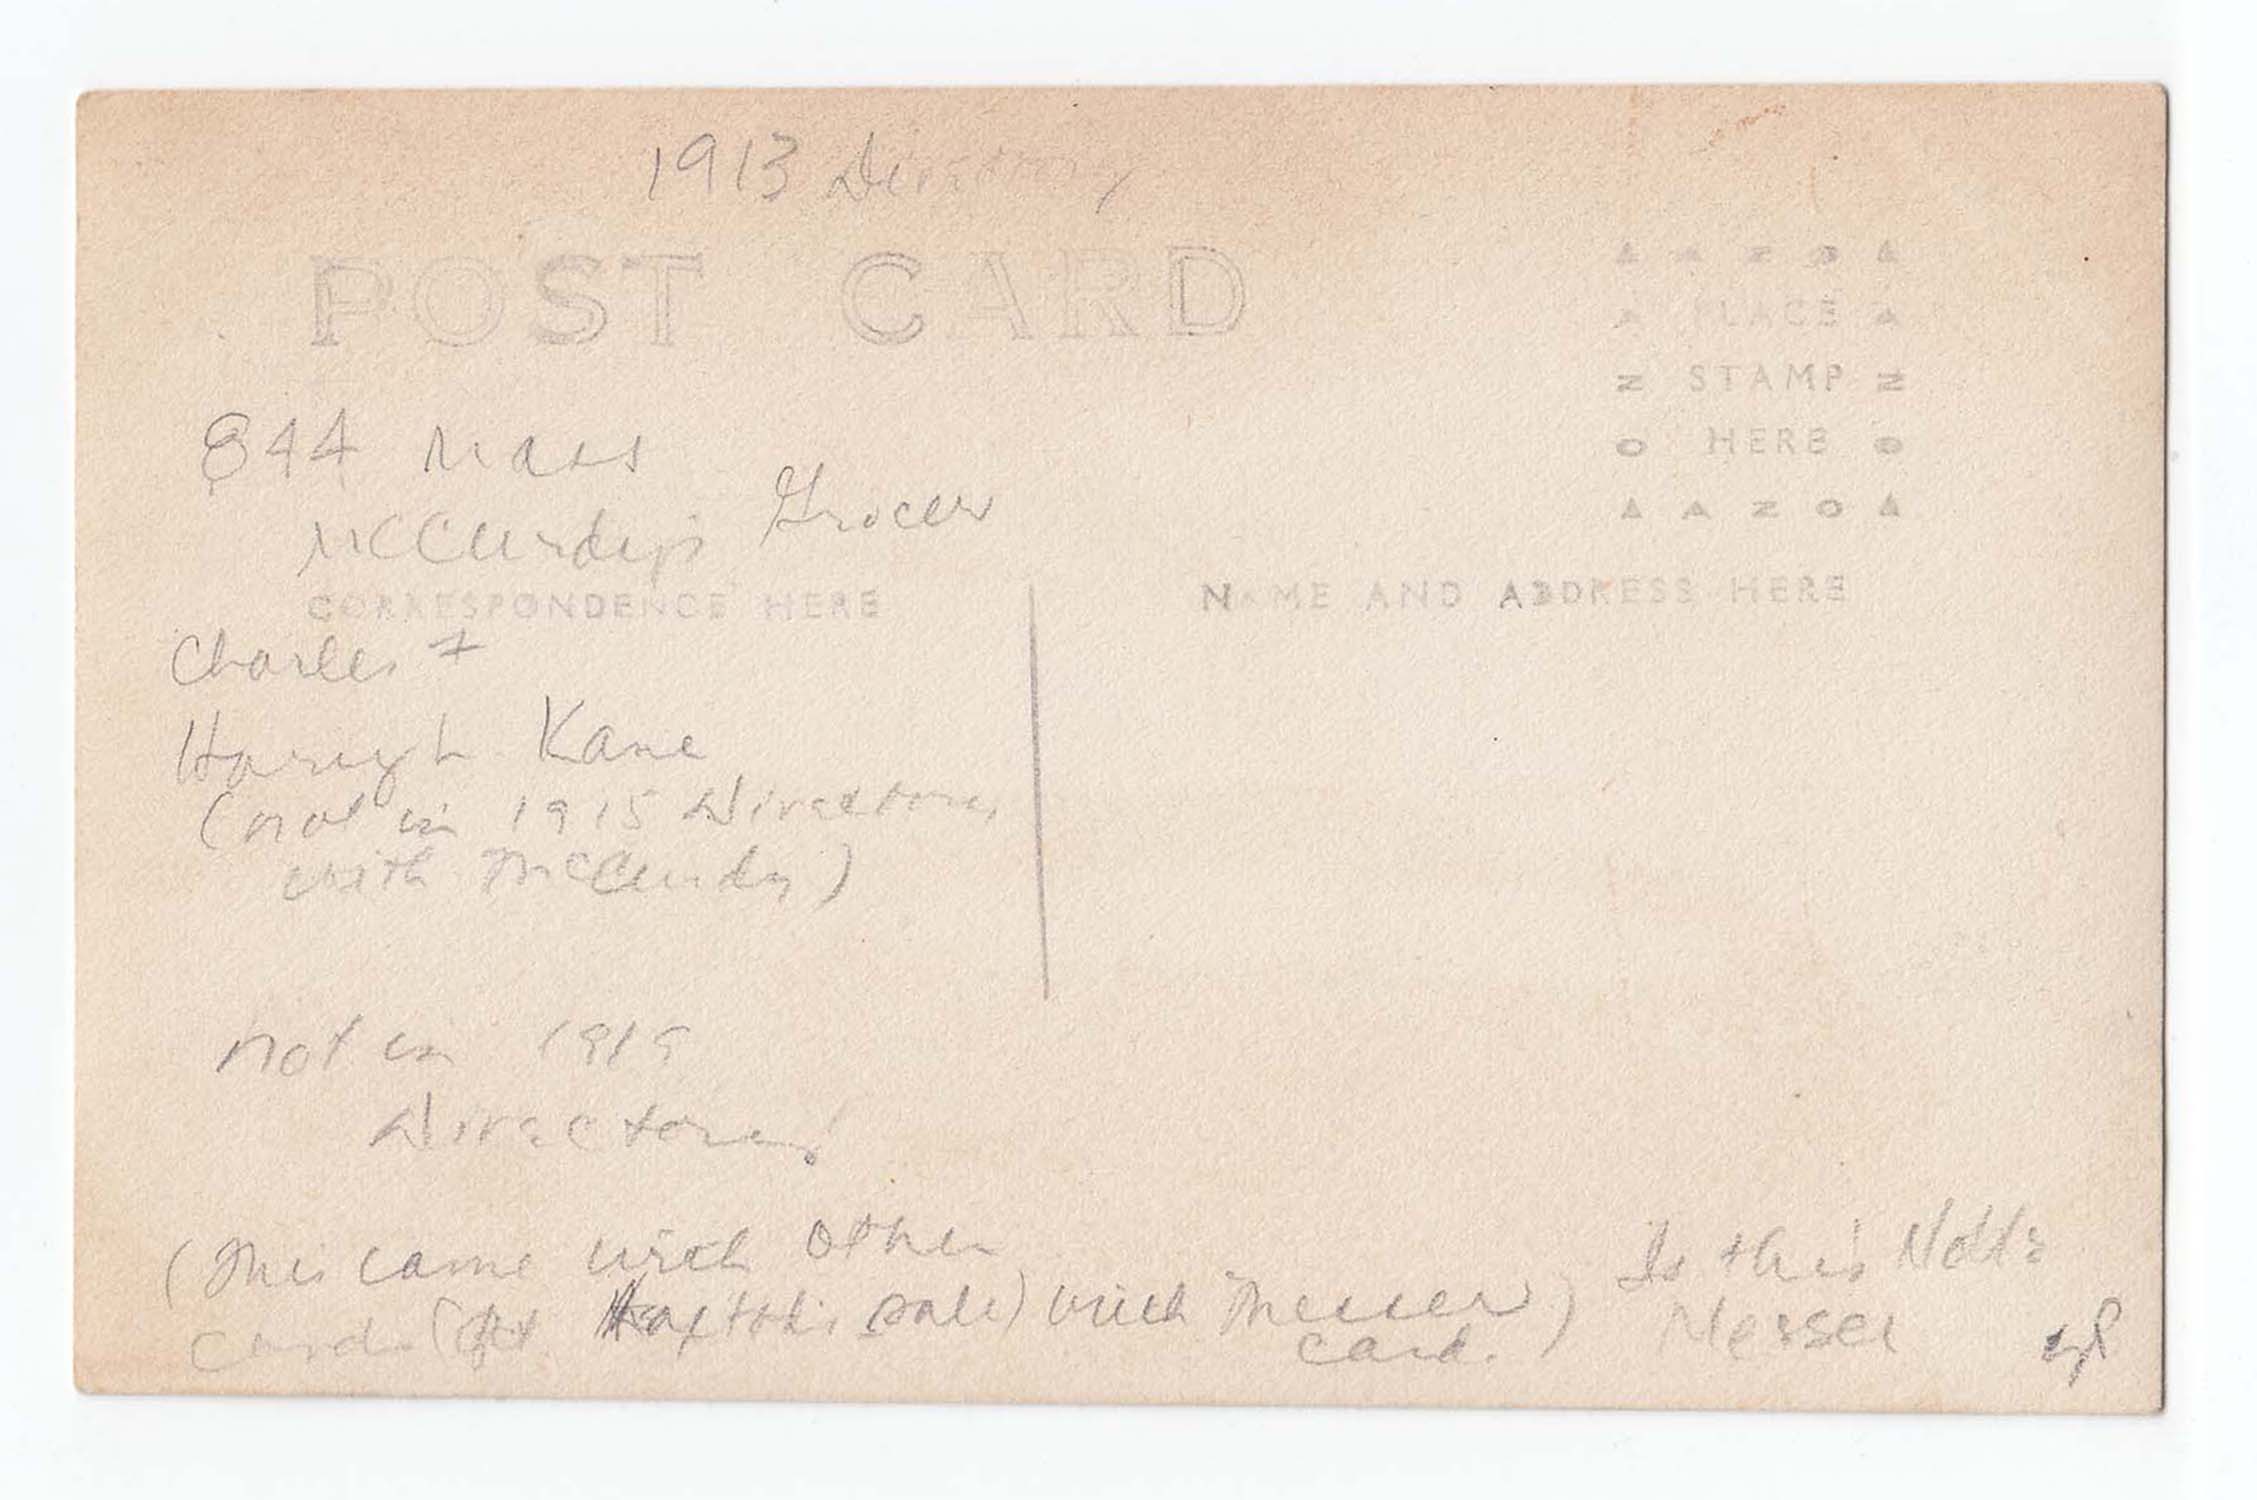 1913 Directory
POST CARD
AAZOA
A PLACE A
N STAMP N
O HERE O
AAZOA
844 Mass
McCurdy's Grocer
CORRESPONDENCE HERE
NAME AND ADDRESS HERE
Charles +
Kane
(not in 1915 Directory
with McCurdy)
not in 1919
Directory
(This came with other
cards sale) with Messer)
card.
Is this
Messer